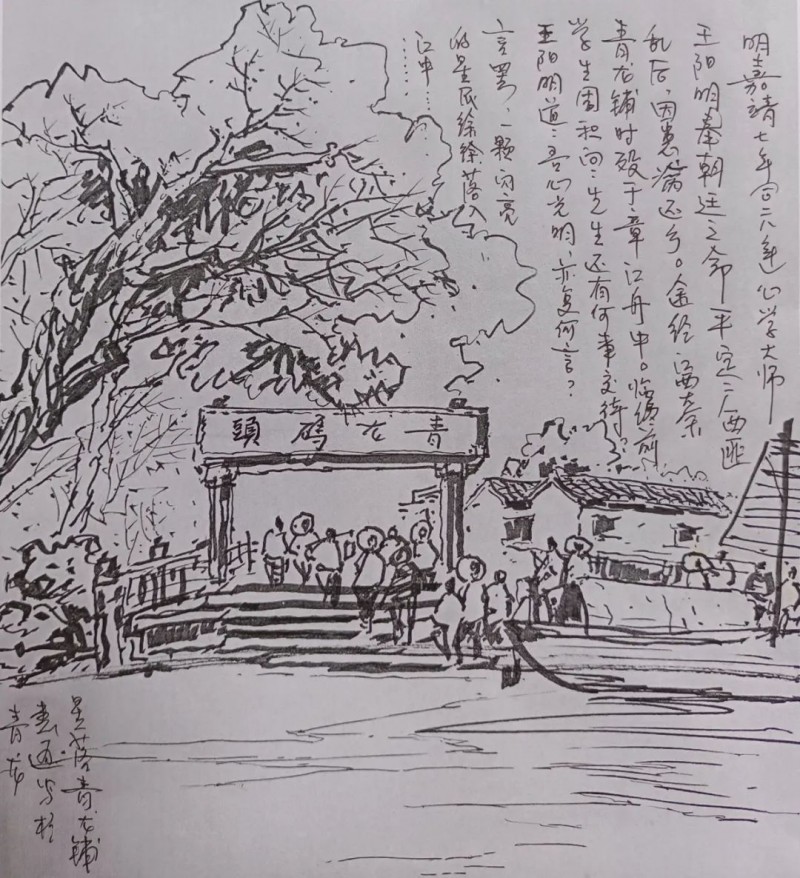 明嘉靖七年 心学大师
王阳明奉朝廷之命平定广西匪
乱后,因患病还乡。途经江西大余
青龙铺时殁于章江舟中。临终前
学生围 问:先生还有何事交待?
王阳明道:吾心光明,亦复何言?
言罢,一颗闪亮
的星辰徐徐落入
江中……
青龙碼頭
星落青龙铺
通写於
青龙